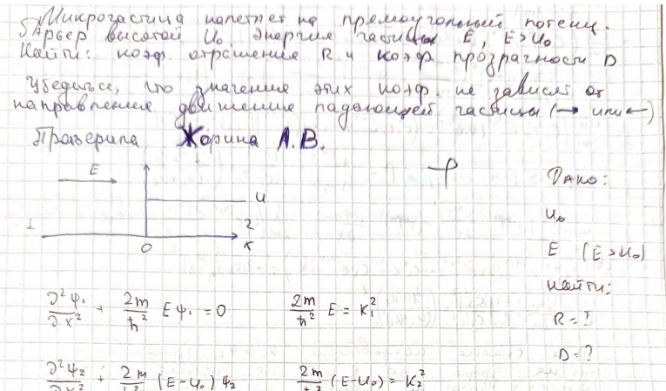 Микрочастица налетает на прямоугольный потенц.
барьер высотой U₀ энергия частицы E, E>U₀
Найти: коэф. отражения R и коэф прозрачности D
Убедиться, что значения этих коэф. не зависят от
направления движения падающей частицы (→ или ←)
Проверила Жорина А.В.
E
U
1
2
0
x
φ
Дано:
U₀
E (E>U₀)
Найти:
R=?
D=?
∂²φ₁/∂x² + 2m/ħ² Eφ₁ = 0 2m/ħ² E = K₁²
∂²φ₂/∂x² + 2m/ħ² (E-U₀)φ₂ 2m/ħ² (E-U₀) = K₂²